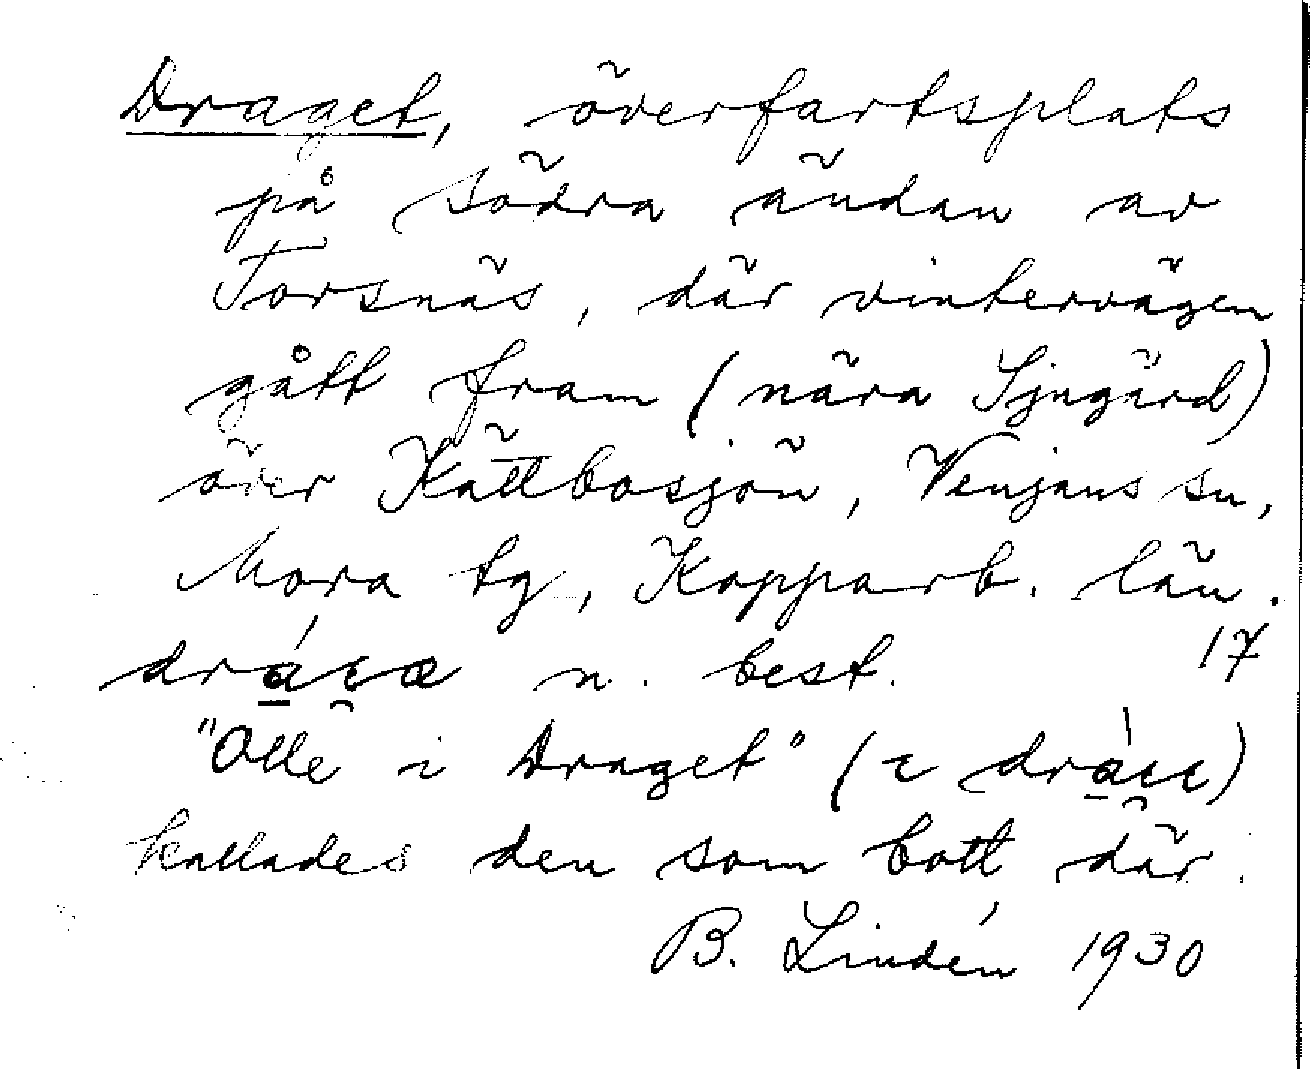 Draget, överfartsplats
på södra ändan av
Torsnäs, där vintervägen
gått fram (nära Sjugärd)
över Kättbosjön, Venjans sn,
Mora tg, Kopparb. län.
17
n. best.
"Olle i Draget" (
kallades den som bott där.
B. Lindén 1930